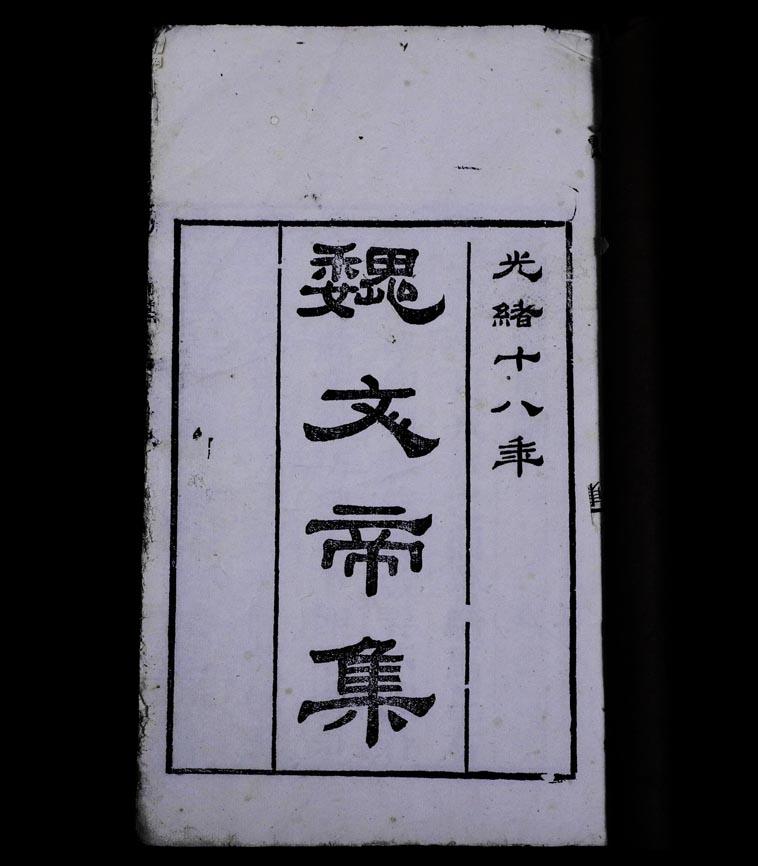 光緒十八年
魏文帝集